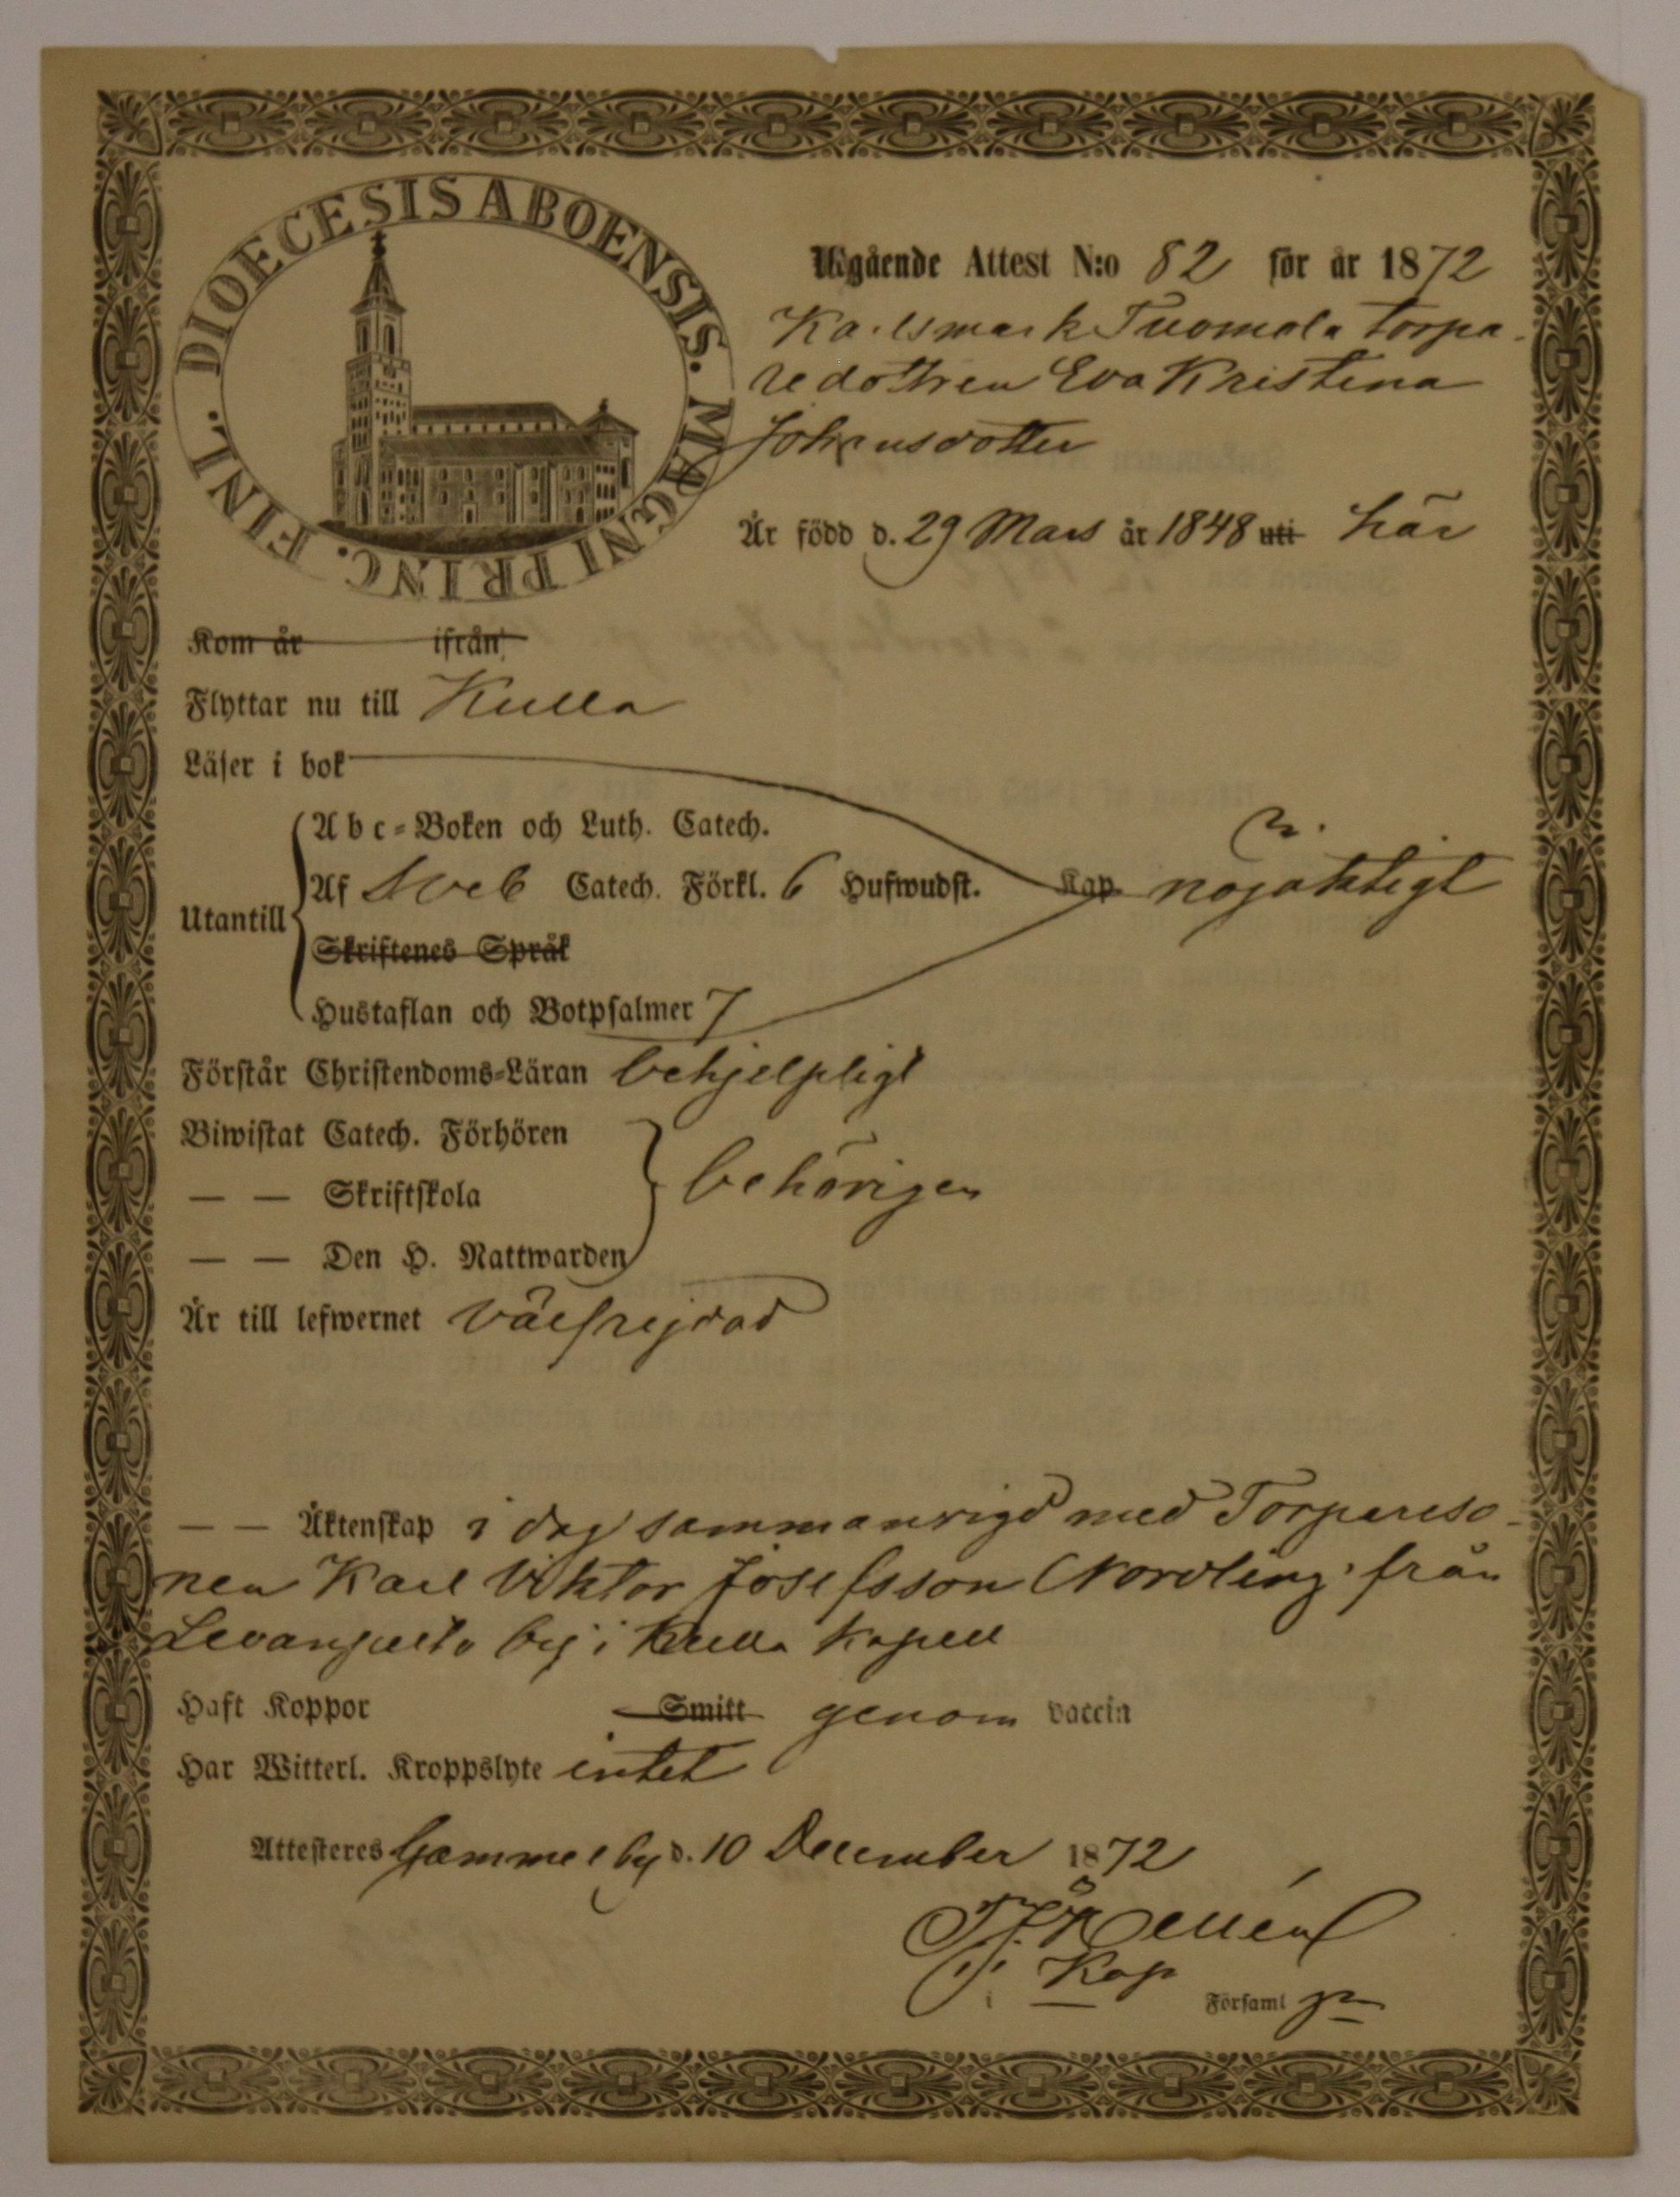 DIOECESIS ABOENSIS. MAGNI PRINC. FINL.
Utgående Attest N:o 82 för år 1872
Karlsmark Tuomola torpa-
redottren Eva Kristina
Johansdotter
Är född d. 29 Mars år 1848 uti här
Kom år ifrån
Flyttar nu till Kulla
Läser i bok
Abc-Boken och Luth. Catech.
Utantill Af Sveb Catech. Förkl. 6 Hufwudst. Kap nöjaktigt
Skriftenes Språk
Hustaflan och Botpsalmer 7
Förstår Christendoms-Läran behjelpligt
Biwistat Catech. Förhören
— — Skriftskola behörigen
— — Den H. Nattwarden
Är till lefwernet välfrejdad
— — Äktenskap i dag sammanvigd med Torpareso-
nen Karl Viktor Josefsson Nordling från
by i Kulla Kapell
Haft Koppor Smitt genom vaccin
Har Witterl. Kroppslyte intet
Attesteres Gammelby d. 10 December 1872
Kap
i Församl